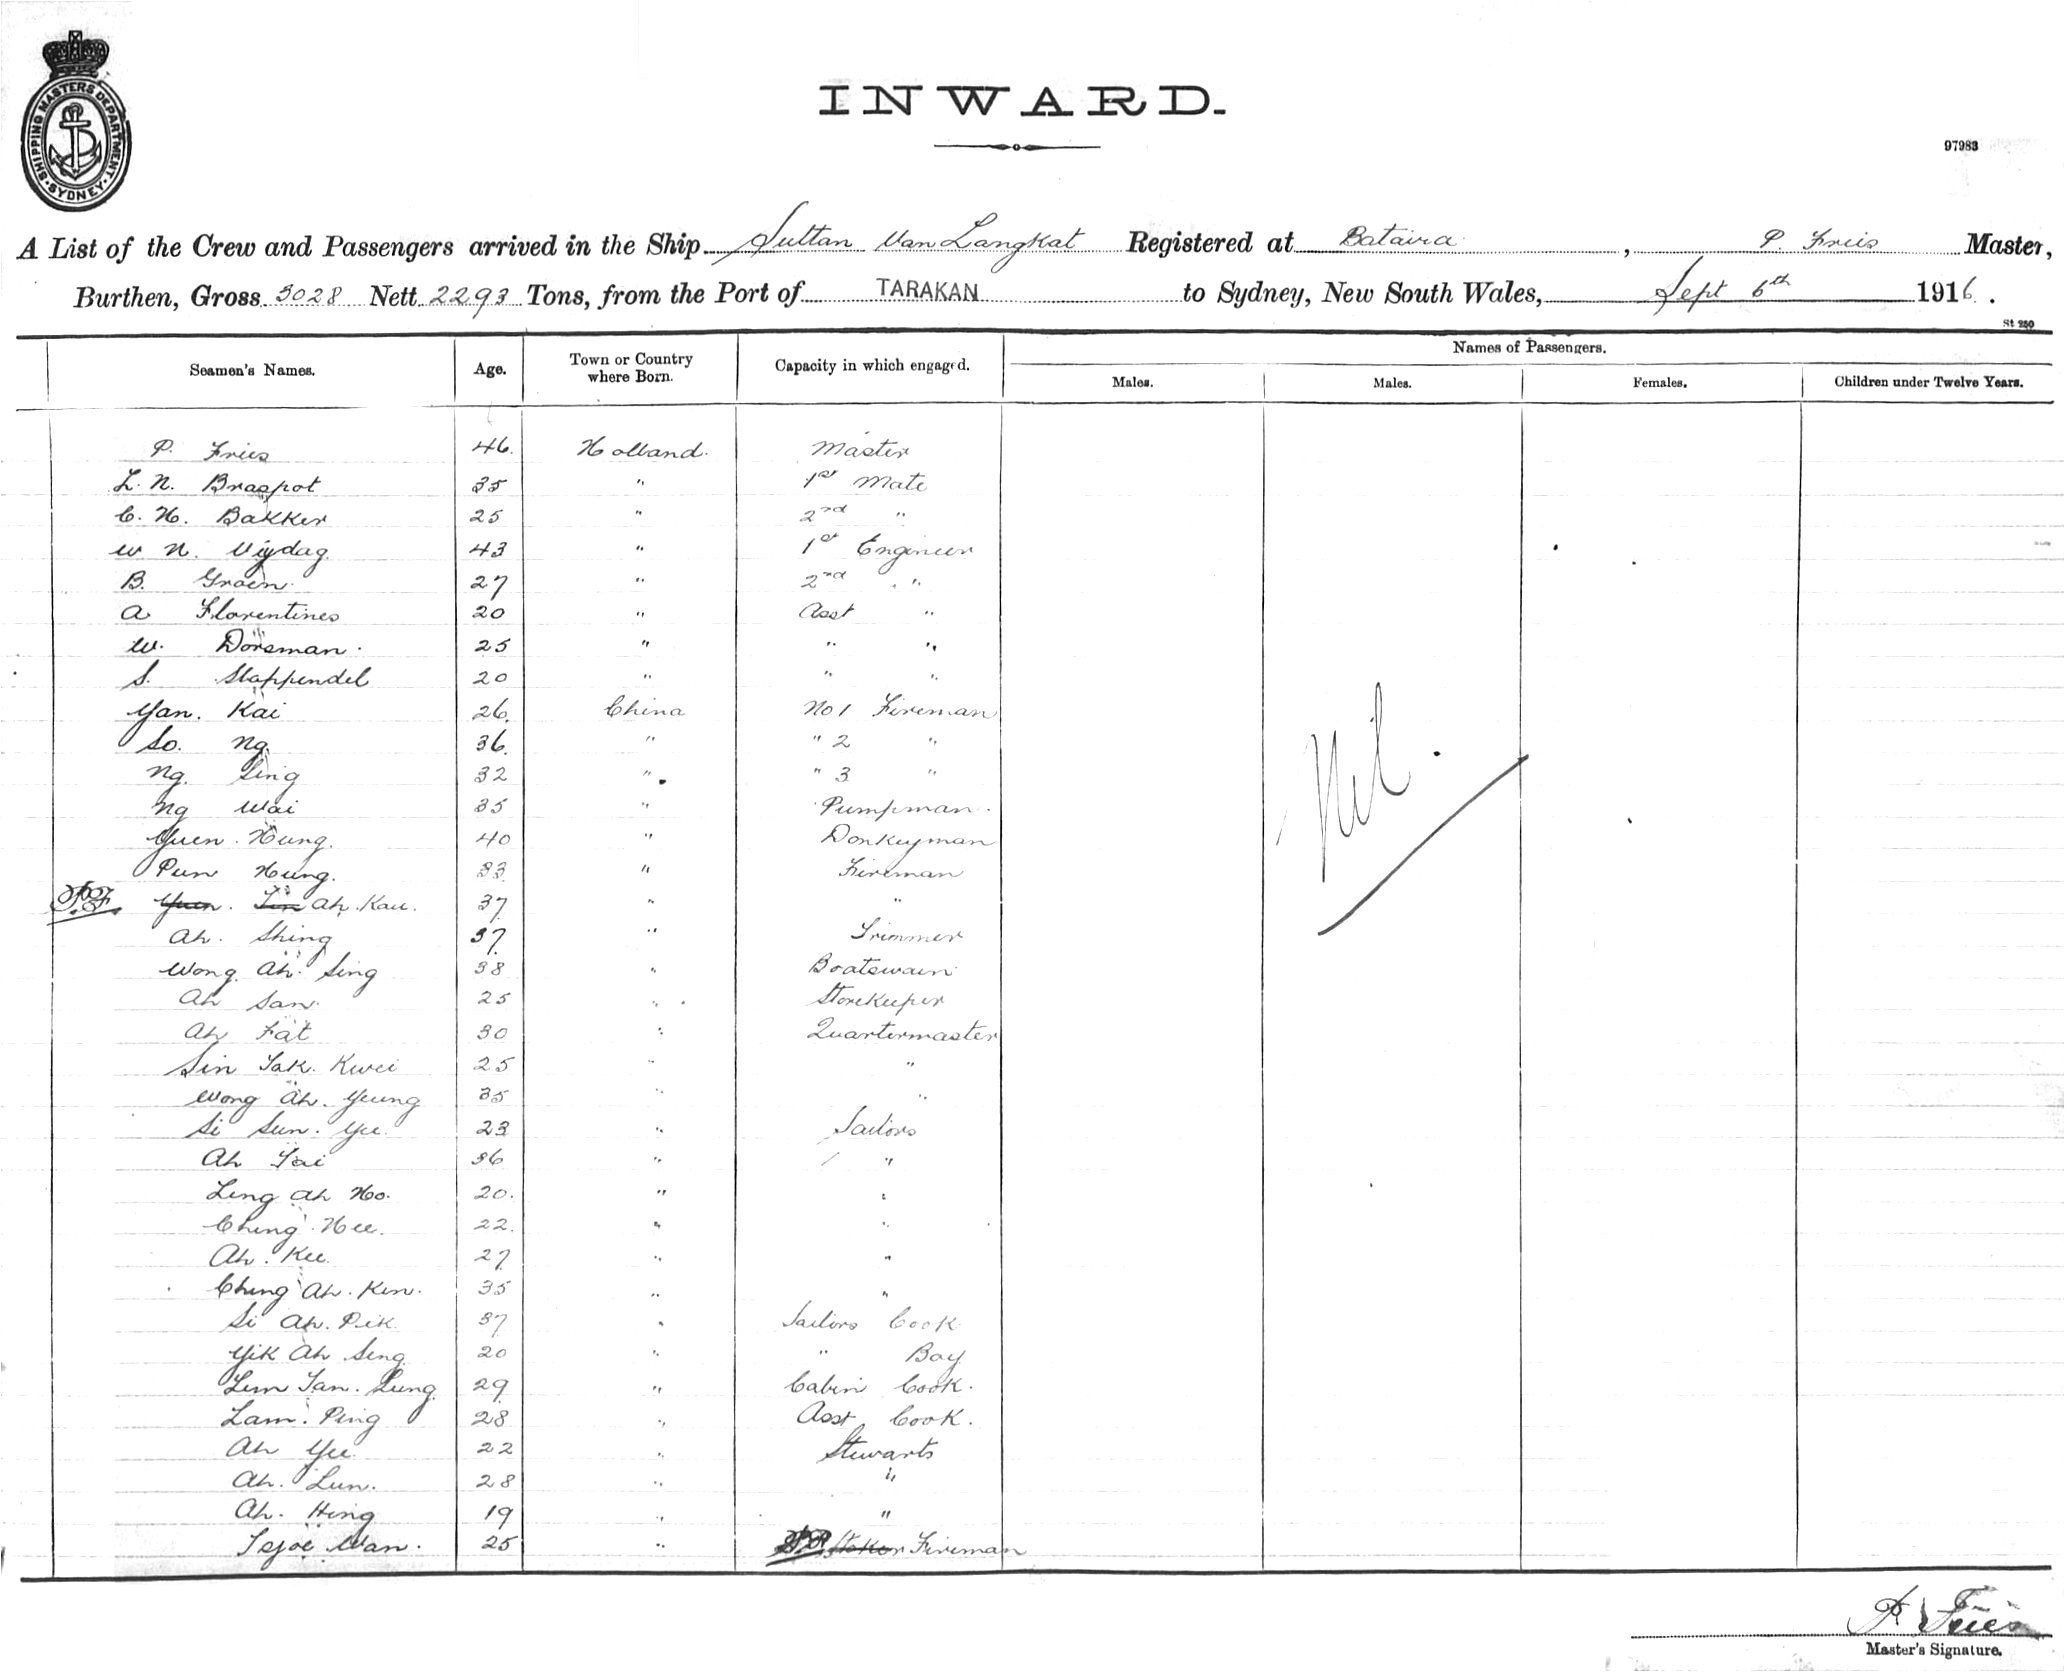 SHIPPING MASTERS DEPARTMENT · SYDNEY ·
INWARD.
97983
A List of the Crew and Passengers arrived in the Ship Sultan Van Langkat Registered at Bataira, P. Fries Master,
Burthen, Gross 3028 Nett 2293 Tons, from the Port of TARAKAN to Sydney, New South Wales, Sept 6th 1916.
St 250
Seamen's Names. Age. Town or Country where Born. Capacity in which engaged. Names of Passengers.
Males. Males. Females. Children under Twelve Years.
P. Fries 46. Holland. Master
L. N. Braspot 35 " 1st Mate
C. H. Bakker 25 " 2nd "
W N. Vijdag 43 " 1st Engineer
B. Groen 27 " 2nd "
A Florentines 20 " Asst "
W. Dorsman. 25 " " "
S. Stappendel 20 " " "
Yan. Kai 26. China No 1 Fireman
So. Ng. 36. " " 2 "
Ng. Sing 32 " " 3 "
Ng Wai 35 " Pumpman.
Yuen. Hung. 40 " Donkeyman
Pun Hung. 33. " Fireman
P.F. Yuen. Tin Ah. Kau. 37 " "
Ah. Shing 37. " Trimmer
Wong. Ah. Sing 38 " Boatswain
Ah San. 25 " Storekeeper
Ah Fat 30 " Quartermaster
Sin Tak. Kwei 25 " "
Wong Ah. Yeung 35 " "
Si Sun. Yee. 23 " Sailors
Ah Tai 36 " "
Leng Ah Ho. 20. " "
Ching Hee. 22. " "
Ah. Kee. 27 " "
Ching Ah. Ken. 35 " "
Si Ah. Pik 37 " Sailors Cook
Yik Ah Seng 20 " " Boy
Lem Tan. Lung. 29. " Cabin Cook.
Lam. Ping 28 " Asst Cook.
Ah Yee 22 " Stewarts
Ah. Lun. 28 " "
Ah. Hing 19 " "
Tsjoe Wan. 25 " Stoker Fireman
Nil.
P. Fries
Master's Signature.